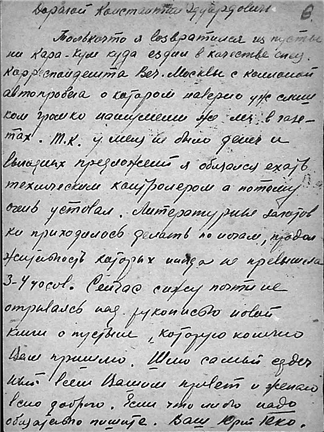 6.
Дорогой Константин Эдуардович
Только что я возвратился из пусты
ни Кара-Кум куда ездил в качестве спец.
корреспондента Веч. Москвы с колонной
автопробега о котором наверно уж слиш
ком громко нашумели же мы в газе-
тах. Т.к. у меня не было денег и
выгодных предложений я обязался ехать
техническим контролером а потому
очень уставал. Литературные заготов
ки приходилось делать по ночам, продол
жительность которых иногда не превышала
3-4 часов. Сейчас сижу почти не
отрываясь над рукописью новой
книги о пустыне, которую конечно
Вам пришлю. Шлю самый сердеч
ный всем Вашим привет и желаю
всего доброго. Если что либо надо
обязательно пишите. Ваш